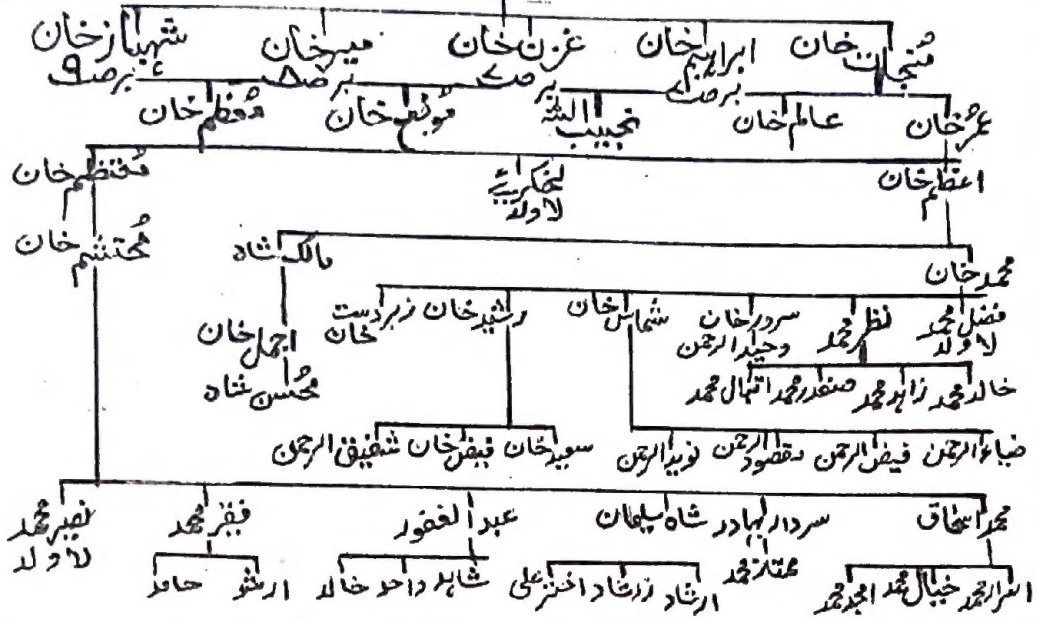 مُنجات خان ابراہیم خان عزن خان میر خان شہباز خان
برصہ ۷ برصہ ۸ برصہ ۹
عمر خان عالم خان نجیب اللہ خان معظم خان
اعظم خان لاولد مقتظم خان
محمد خان مالک شاہ محتشم خان
فضل محمد لاولد نظر محمد سرور خان وحید الرحمن شماس خان رشید خان زبردست خان
اجمل خان
محسن شاہ
خالد محمد زاہد محمد صفدر محمد اقبال محمد
ضیاء الرحمن فیض الرحمن مقصود الرحمن نوید الرحمن سعید خان فیض خان شفیق الرحمن
محمد اسحاق سردار بہادر شاہ سلیمان عبد الغفور فقیر محمد نصیر محمد لاولد
محمد خیال محمد امجد محمد ممتاز محمد ارشاد زرشاد اختر علی شاہد واحد خالد حامد